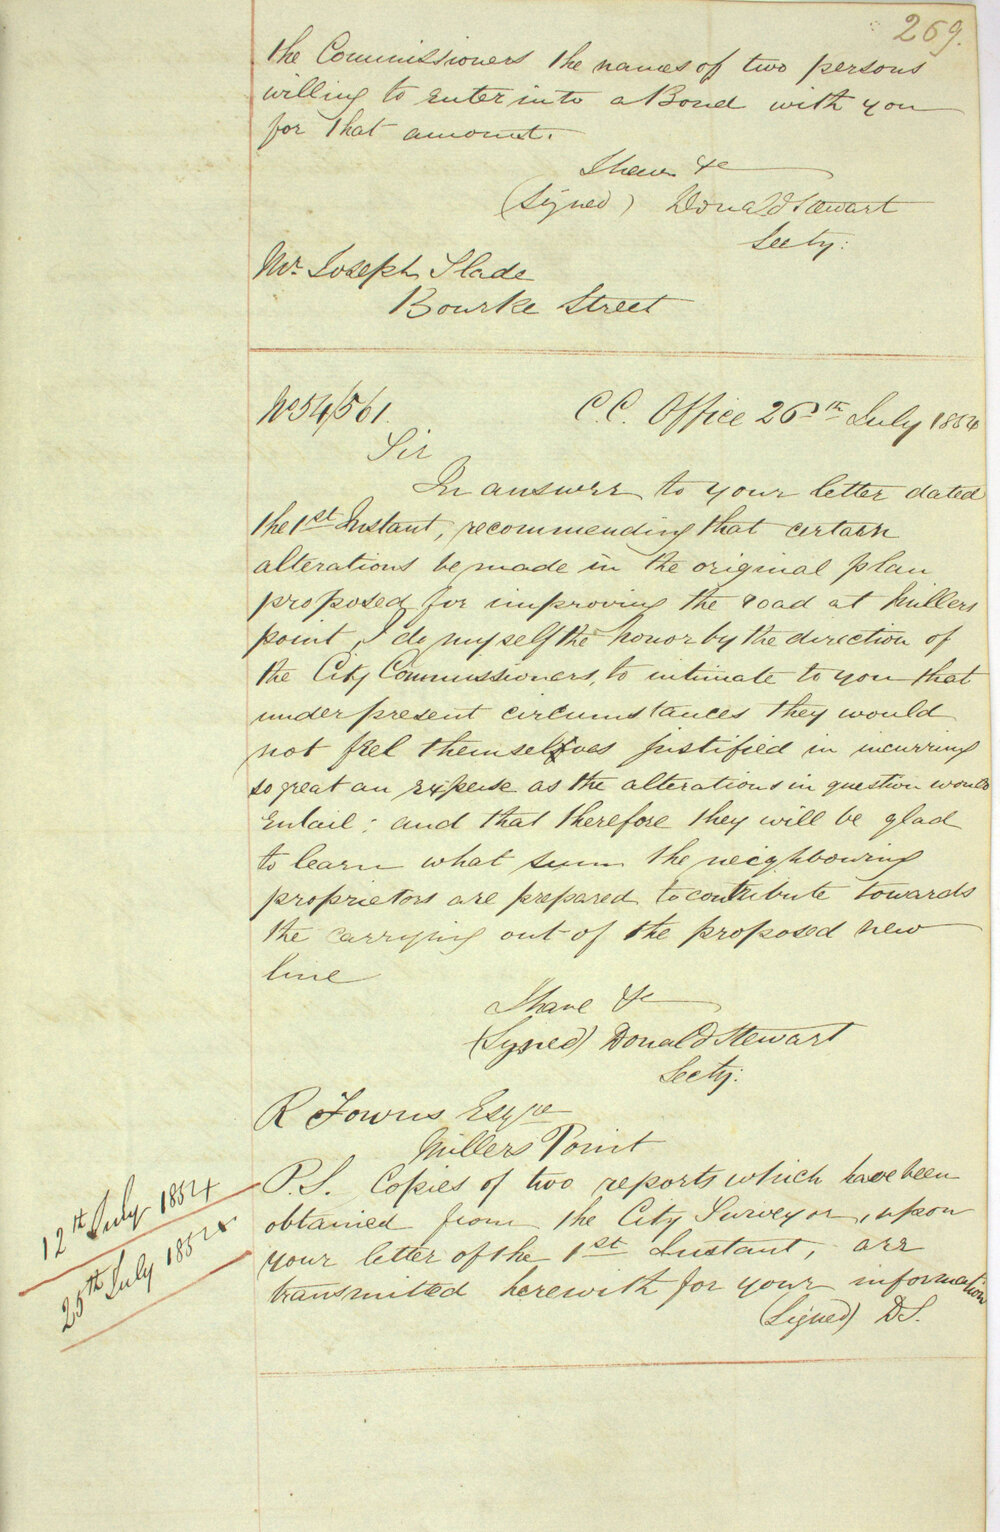 269.
the Commissioners the names of two persons
willing to enter into a Bond with you
for that amount.
I have &c
(Signed) Donald Stewart
Secty:
Mr. Joseph Slade
Bourke Street
No 54/561.
C.C. Office 26th July 1854
Sir
In answer to your letter dated
the 1st Instant, recommending that certain
alterations be made in the original plan
proposed for improving the road at Millers
point, I do myself the honor by the direction of
the City Commissioners, to intimate to you that
under present circumstances they would
not feel themselves justified in incurring
so great an expense as the alterations in question would
entail; and that therefore they will be glad
to learn what sum the neighbouring
proprietors are prepared to contribute towards
the carrying out of the proposed new
line
I have &c
(Signed) Donald Stewart
Secty:
R Towns Esqre
Millers Point
P.S. Copies of two reports which have been
obtained from the City Surveyor, upon
your letter of the 1st Instant, are
transmitted herewith for your information
(Signed) D.S.
12th July 1854
25th July 1854